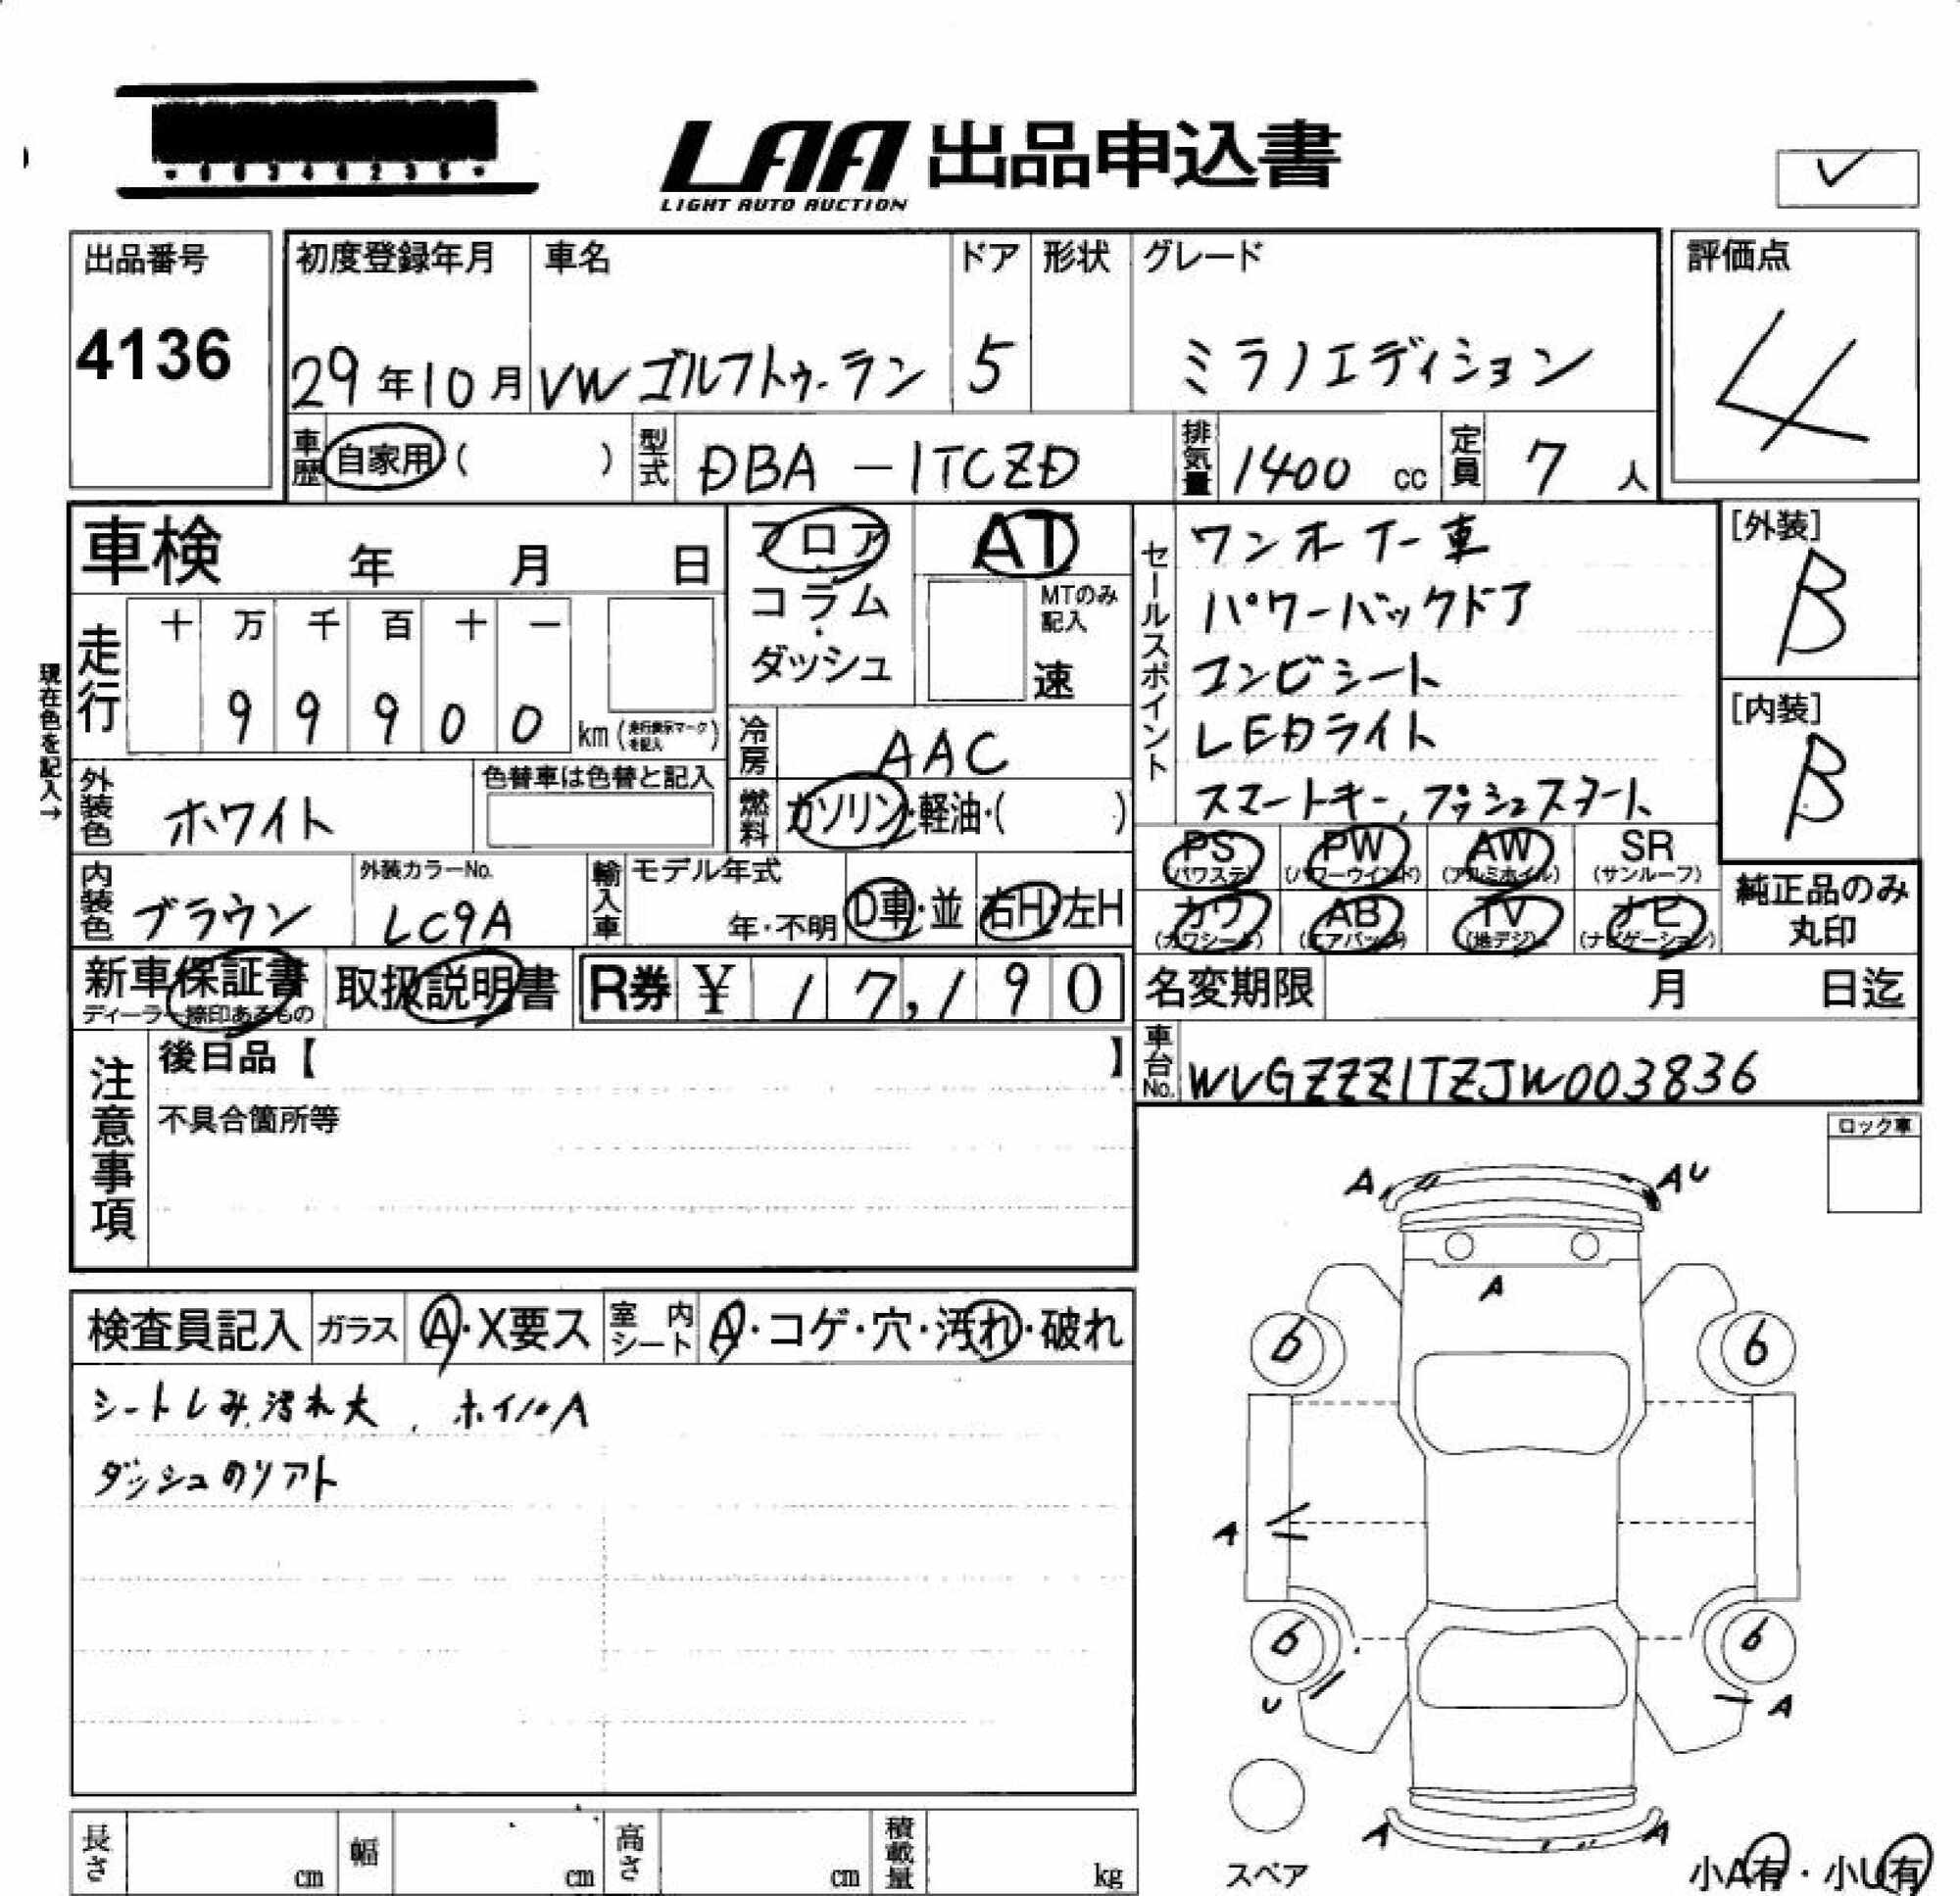 LAA 出品申込書
LIGHT AUTO AUCTION
出品番号
4136
初度登録年月
29年10月
車名
VWゴルフトゥーラン
ドア
5
形状
グレード
ミラノエディション
評価点
4
車歴 自家用 ( )
型式 DBA-1TCZD
排気量 1400 cc
定員 7 人
車検 年 月 日
フロア・コラム・ダッシュ
AT
MTのみ記入
速
セールスポイント
ワンオーナー車
パワーバックドア
コンビシート
LEDライト
スマートキー,プッシュスタート
[外装]
B
[内装]
B
現在色を記入→
走行
十 万 千 百 十 一
9 9 9 0 0 km (走行表示マークを記入)
冷房 AAC
外装色 ホワイト
色替車は色替と記入
燃料 ガソリン・軽油・( )
PS (パワステ)
PW (パワーウインド)
AW (アルミホイル)
SR (サンルーフ)
カワ (カワシート)
AB (エアバック)
TV (地デジ)
ナビ (ナビゲーション)
純正品のみ丸印
内装色 ブラウン
外装カラーNo. LC9A
輸入車
モデル年式 年・不明
D車・並
右H 左H
新車保証書
ディーラー捺印あるもの
取扱説明書
R券 ¥ 17,190
名変期限 月 日迄
車台No. WVGZZZ1TZJW003836
注意事項
後日品【 】
不具合箇所等
ロック車
検査員記入
ガラス A・X要ス
室内シート A・コゲ・穴・汚れ・破れ
シートしみ,汚れ大 , ホイルA
ダッシュのリアト
A
AU
A
6
6
A
6
6
U
A
A
A
スペア
小A有・小U有
長さ cm
幅 cm
高さ cm
積載量 kg